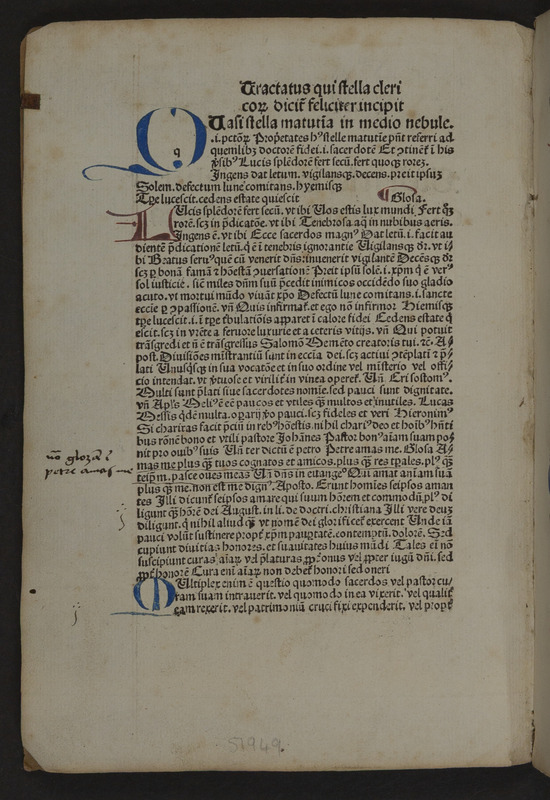 Tractatus qui stella cleri
coꝝ dicit᷑ feliciter incipit
Quasi stella matutīa in medio nebule.
.i. pctōꝝ Prop̄etates hꝰ stelle matutīe pn̄t referri ad
quemlibꝫ doctorē fidei .i. sacerdotē Et ꝯtinet᷑ ī his
ꝟsibꝰ Lucis splēdorē fert secū. fert quoqꝫ roreꝫ.
Ingens dat letum. vigilansqꝫ. decens. preit ipsuꝫ
Solem. defectum lune comitans. hyemisqꝫ
Tꝑe lucescit. cedens estate quiescit Glosa.
Lucis splēdorē fert secū. vt ibi Uos estis lux mundi Fert qꝫ
rorē. scꝫ in p̄dicatōe. vt ibi Tenebrosa aq̄ in nubibus aeris.
Ingens ē. vt ibi Ecce sacerdos magnꝰ Dat letū .i. facit au
dientē p̄dicationē letū. q̄ ē ī tenebris ignorantie Uigilansqꝫ dr̄. vt i
bi Bratus seruꝰ quē cū venerit dn̄s: inuenerit vigilantē Decēsqꝫ dr̄
scꝫ ꝓ bonā famā ⁊ hōestā ꝯuersationē Preit ipsū solē .i. xp̄m q̄ ē verꝰ
sol iusticie. siē miles dn̄m suū p̄cedit inimicos occidēdo suo gladio
acuto. vt mortui mūdo viuāt xp̄o Defectū lune comitans .i. sancte
eccīe ꝑ ꝯpassionē. vn̄ Quis infirmat᷑. et ego nō infirmor Hiemisqꝫ
tꝑe lucescit .i. ī tꝑe t̄bulatiōis apparet ī calore fidei Cedens estate q̄
escit. scꝫ in vr̄ete a feruore luxurie et a ceteris vitijs. vn̄ Qui potuit
trāsgredi et nō ē trāsgressus Salomō Memēto creatoris tui. ⁊c̄. A⸗
post. Diuisiōes mīstrantiū sunt in eccīa dei. scꝫ actiui ꝯtēplatī ⁊ p̄⸗
lati Unusqꝫsqꝫ in sua vocatōe et in suo ordine vel mīsterio vel offi⸗
cio intendat. vt ꝟtuose et virilit᷑ in vinea operet᷑. Un̄ Crisostomꝰ.
Multi sunt p̄lati siue sacerdotes nomīe. sed pauci sunt dignitate.
vn̄ Apl̄s Meliꝰ ē eē paucos et vtiles qꝫ multos et inutiles. Lucas
Messis qͥdē multa. oꝑarij v̄o pauci. scꝫ fideles et veri Hieronimꝰ
Si charitas facit p̄ciū in rebꝰ hōestis. nihil chariꝰ deo et hoībꝰ hn̄ti
bus rōnē bono et vtili pastore Johānes Pastor bonꝰ aīam suam po⸗
nit pro ouibꝰ suis Un̄ ter dictū ē petro Petre amas me. Glosa A⸗
mas me plus qꝫ tuos cognatos et amicos. plus qꝫ res tꝑales. plꝰ qꝫ
teip̄m. pasce oues meas Un̄ dn̄s in euangeꝰ Qui amat aīam suā
plus qꝫ me. non est me dignꝰ. Aposto. Erunt homīes seipsos aman
tes Illi dicunt᷑ seipsos amare qui suum hōrem et commodū. plꝰ di
ligunt qꝫ hōrē dei August. in li. de doctri. christiana Illi vere deuꝫ
diligunt. q̄ nihil aliud qꝫ vt nomē dei glorificet᷑ exercent Unde iā
pauci volūt sustinere propt᷑ xp̄m pauꝑtatē. contemptū. dolorē. Sed
cupiunt diuitias honores. et suauitates huius mūdi Tales eī nō
suscipiunt curas aīaꝝ vel p̄laturas ꝓpt᷑ onus vel propter iugū dn̄i. sed
ꝓpt᷑ honorē Cura enī aīaꝝ non debet᷑ honori sed oneri
Multiplex enim ē questio quomodo sacerdos vel pastor cu⸗
ram suam intrauerit. vel quomodo in ea vixerit. vel qualit᷑
eam rexerit. vel patrimoniū crucifixi expenderit. vel propt᷑
glozā i
petre amas me
51949.